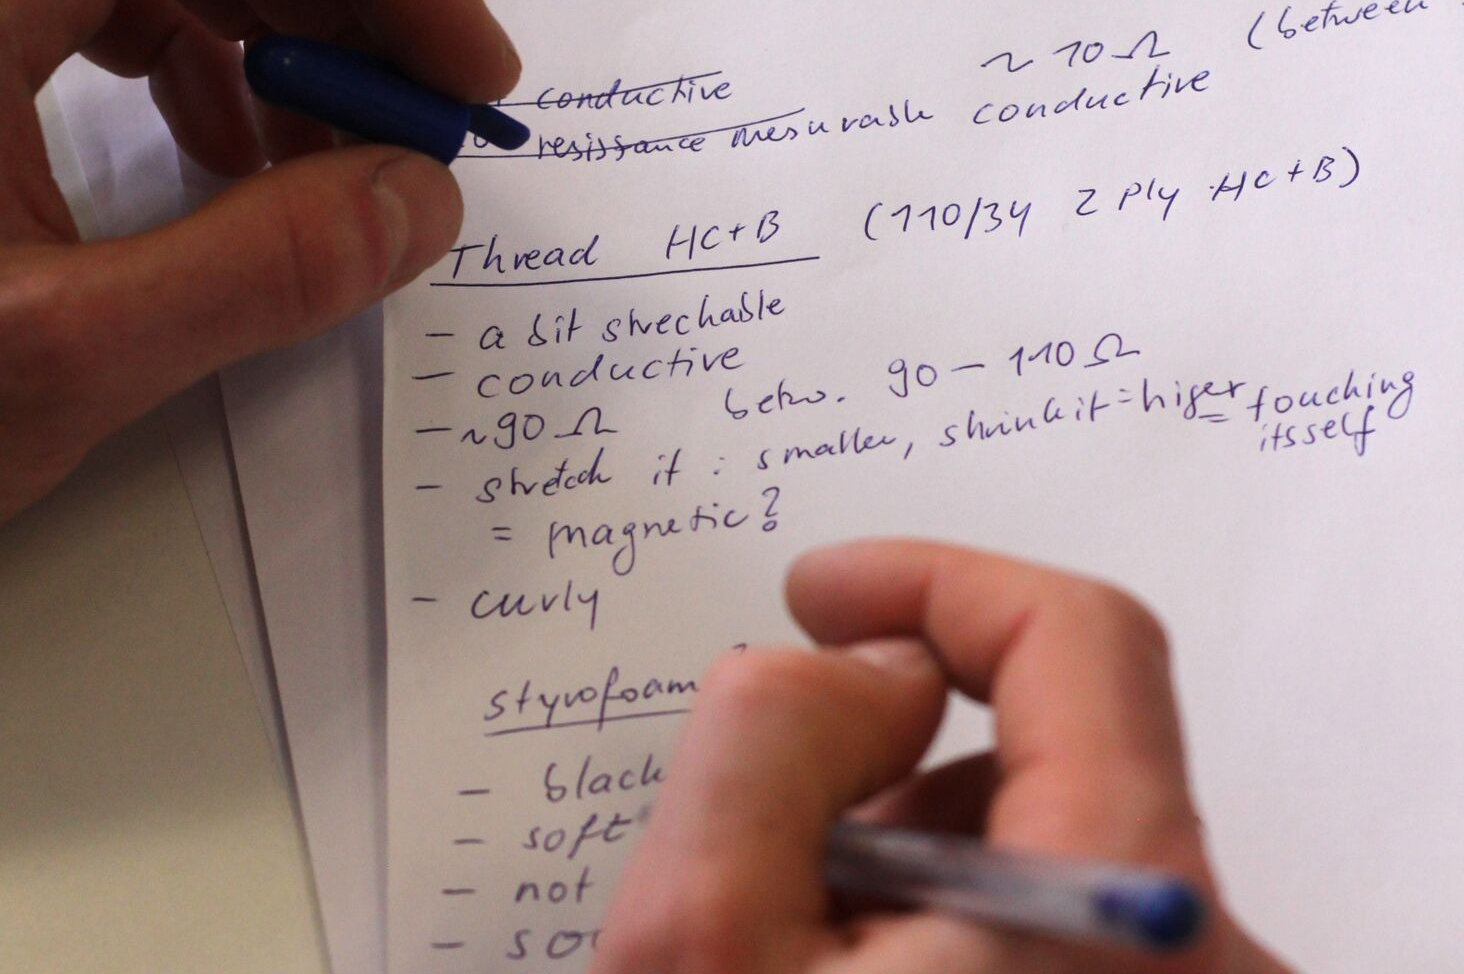 ~ 10 Ω (between
conductive
resissance mesurable conductive
Thread HC+B (110/34 2 Ply HC+B)
- a bit strechable
- conductive
- ~90 Ω betw. 90 - 110 Ω
- stretch it : smaller, shrink it = higer = touching
itsself
= magnetic?
- curly
styrofoam
- black
- soft
- not
- so